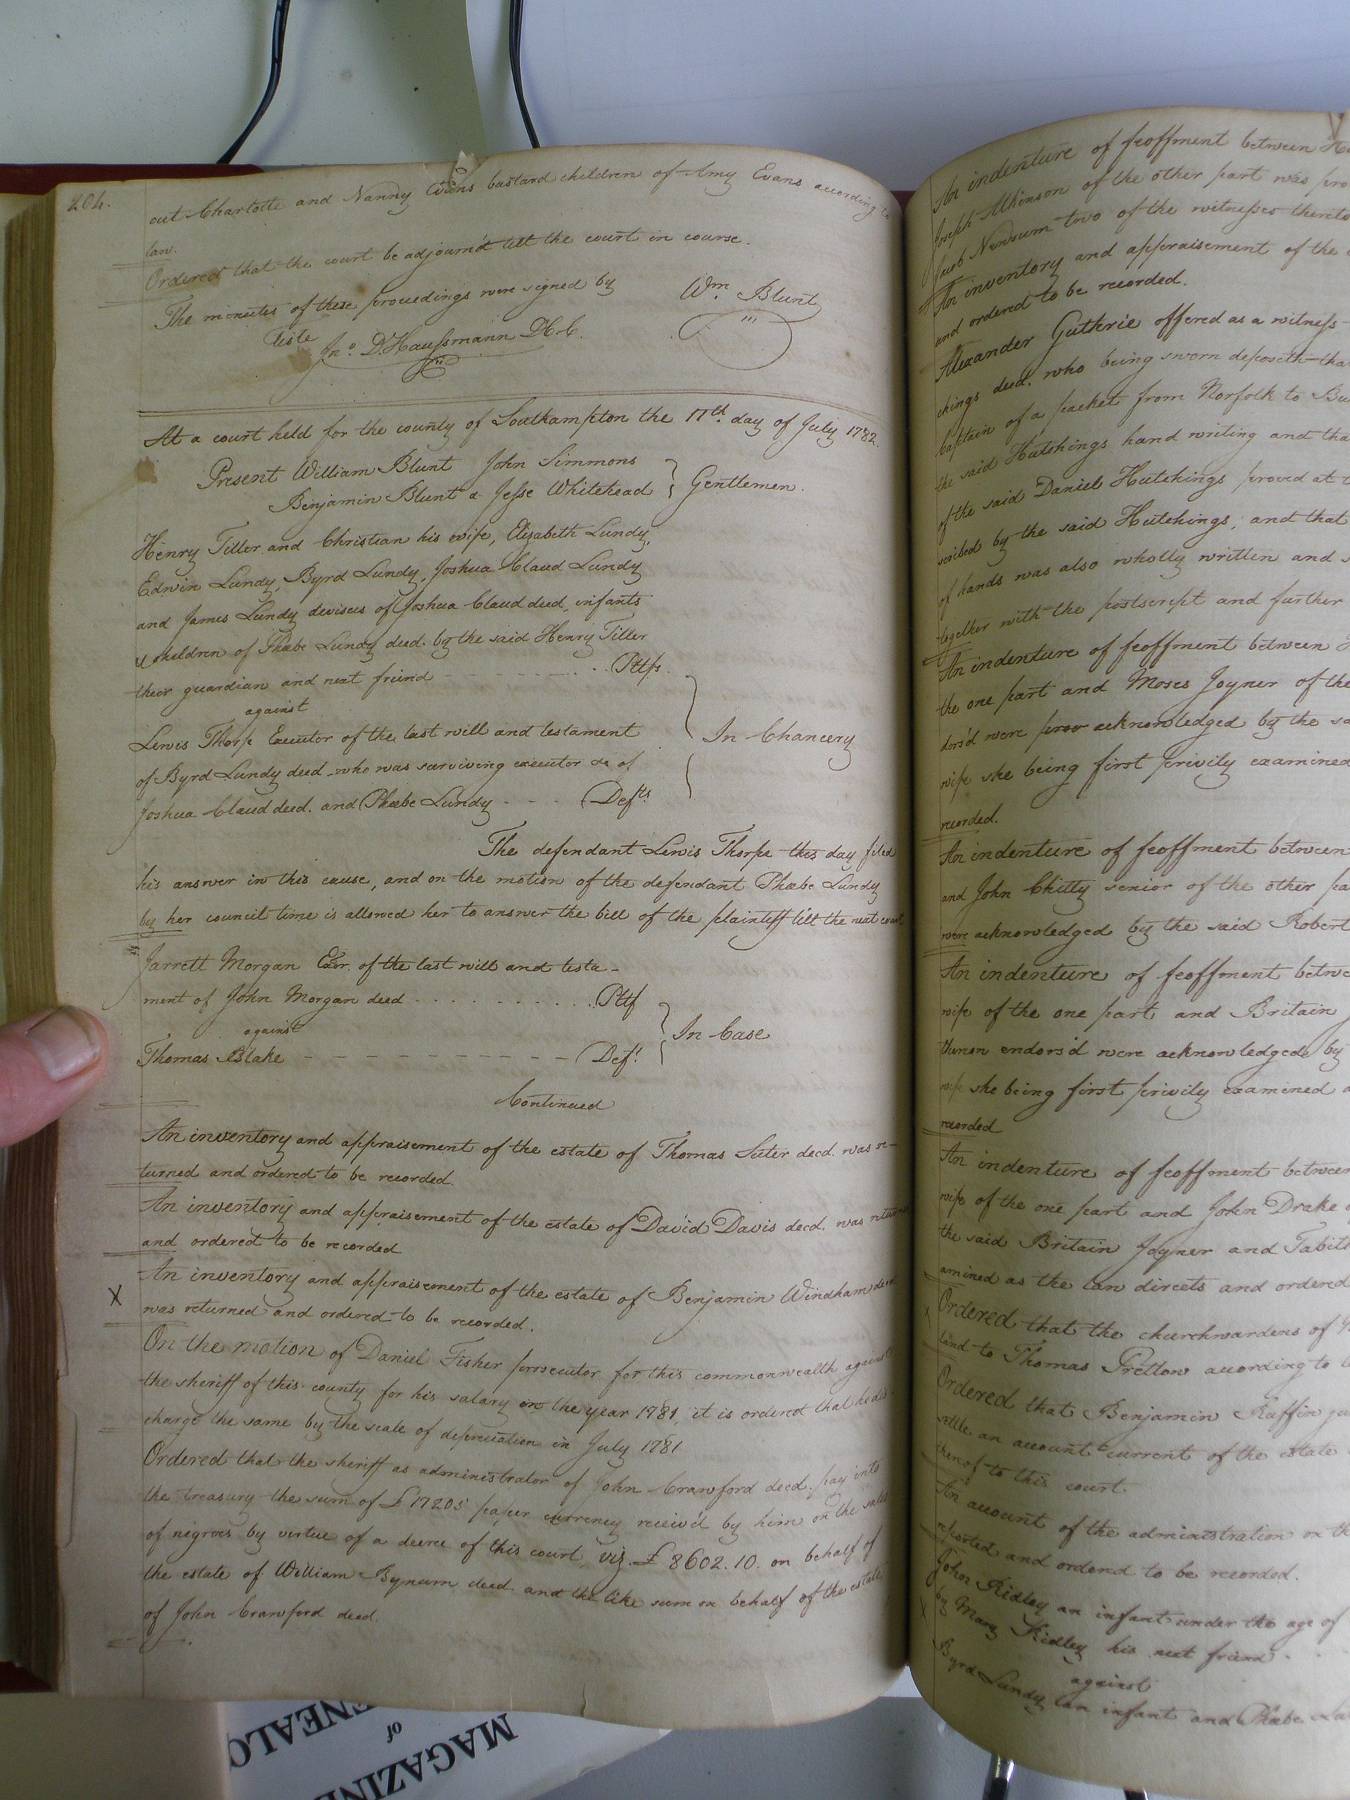 204.
out Charlotte and Nanny Evans bastard children of Amy Evans according to
law.
Ordered that the court be adjourn'd till the court in course.
The minutes of these proceedings were signed by Wm. Blunt
Teste Jno. D. Haussmann D.C.
At a court held for the county of Southampton the 11th. day of July 1782.
Present William Blunt John Simmons
Benjamin Blunt & Jesse Whitehead } Gentlemen.
Henry Tiller and Christian his wife, Elizabeth Lundy,
Edwin Lundy, Byrd Lundy, Joshua Claud Lundy
and James Lundy devisees of Joshua Claud deed. infants
& children of Phœbe Lundy deed. by the said Henry Tiller
their guardian and next friend Pltfs.
against
In Chancery
Lewis Thorpe Executor of the last will and testament
of Byrd Lundy deed. who was surviving executor &c of
Joshua Claud deed. and Phœbe Lundy Defts.
The defendant Lewis Thorpe this day filed
his answer in this cause, and on the motion of the defendant Phœbe Lundy
by her council time is allowed her to answer the bill of the plaintiff till the next court
Jarrett Morgan Exr. of the last will and testa-
ment of John Morgan deed Pltf
against
In Case
Thomas Blake Deft.
Continued
An inventory and appraisement of the estate of Thomas Suter decd. was re-
turned and ordered to be recorded.
An inventory and appraisement of the estate of David Davis decd. was returned
and ordered to be recorded
An inventory and appraisement of the estate of Benjamin Windham deed
X
was returned and ordered to be recorded.
On the motion of Daniel Fisher prosecutor for this commonwealth against
the sheriff of this county for his salary on the year 1781, it is ordered that he dis-
charge the same by the scale of depreciation in July 1781
Ordered that the sheriff as administrator of John Crawford deed. pay into
the treasury the sum of £17205 paper currency receiv'd by him on the sales
of negroes by virtue of a decree of this court viz. £8602.10. on behalf of
the estate of William Bynum deed. and the like sum on behalf of the estate
of John Crawford deed.
An indenture of feoffment between
Joseph Atkinson of the other part was
Jacob Newsum two of the witnesses thereto
An inventory and appraisement of the
and ordered to be recorded.
Alexander Guthrie offered as a witness
deed. who being sworn deposeth
captain of a packet from Norfolk to
the said Hutchings hand writing and
of the said Daniel Hutchings proved at
scribed by the said Hutchings, and that
of hands was also wholly written and
together with the postscript and further
An indenture of feoffment between
the one part and Moses Joyner of the
dors'd were prov acknowledged by the
wife she being first privily examined
recorded.
An indenture of feoffment between
and John Chitty senior of the other
were acknowledged by the said Robert
An indenture of feoffment
wife of the one part and Britain
thereon endors'd were acknowledged by
wife she being first privily examined
recorded
An indenture of feoffment between
wife of the one part and John Drake
the said Britain Joyner and
amined as the law directs and ordered
Ordered that the churchwardens of
bind to Thomas Pretlow according to
Ordered that Benjamin Ruffin
settle an account current of the estate
thereof to this court.
An account of the administration on
reported and ordered to be recorded.
John Ridley an infant under the age of
by Mary Ridley his next friend
against
Byrd Lundy an infant and Phœbe
MAGAZINE
of